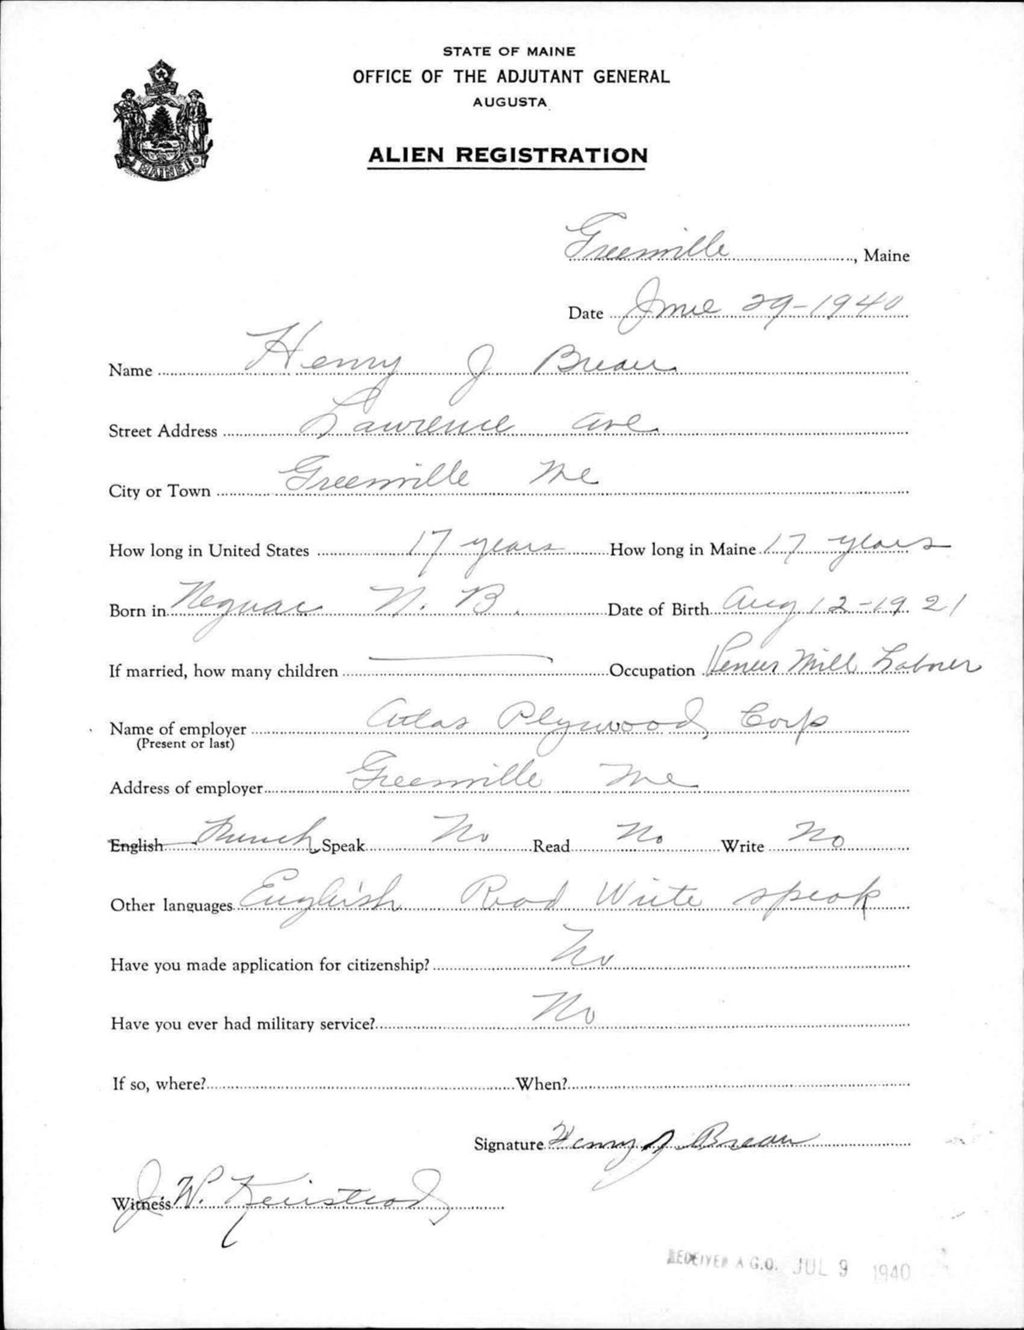 STATE OF MAINE
OFFICE OF THE ADJUTANT GENERAL
AUGUSTA
ALIEN REGISTRATION
MAINE
Greenville, Maine
Date June 29-1940
Name Henry J Breau
Street Address Lawrence Ave
City or Town Greenville Me
How long in United States 17 years How long in Maine 17 years
Born in Neguac N. B. Date of Birth Aug 12-1921
If married, how many children — Occupation Veneer Mill Laborer
Name of employer Atlas Plywood Corp
(Present or last)
Address of employer Greenville Me
English French Speak No Read No Write No
Other languages English Read Write speak
Have you made application for citizenship? No
Have you ever had military service? No
If so, where? When?
Signature Henry J Breau
Witness J. W.
RECEIVED A.G.O. JUL 9 1940